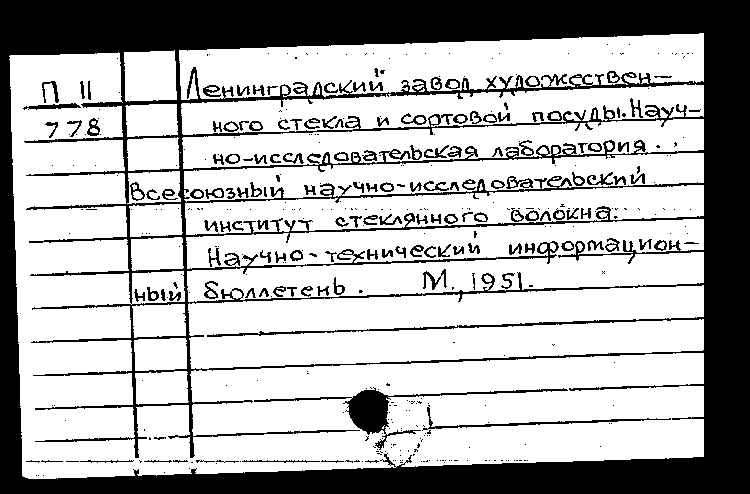 П 11 Ленинградский завод художествен-
778 ного стекла и сортовой посуды. Науч-
но-исследовательская лаборатория.
Всесоюзный научно-исследовательский
институт стеклянного волокна.
Научно-технический информацион-
ный бюллетень. М., 1951.